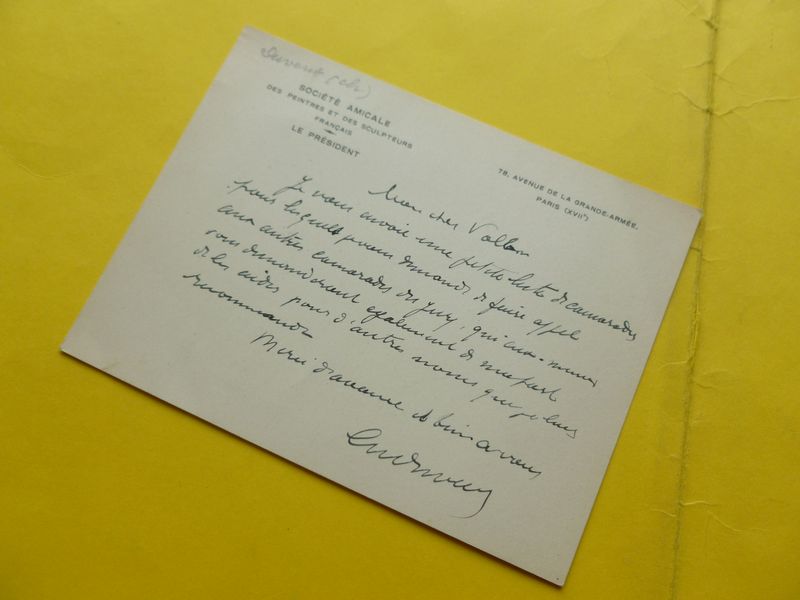 SOCIÉTÉ AMICALE
DES PEINTRES ET DES SCULPTEURS
FRANÇAIS
LE PRÉSIDENT
78, AVENUE DE LA GRANDE-ARMÉE,
PARIS (XVIIe)
Mon cher Vollon
Je vous envoie une petite liste de camarades
pour lesquels je vous demande de faire appel
aux autres camarades du Jury, qui eux-mêmes
vous demanderont également de ma part
de les aider pour d'autres noms que je leur
recommande
Merci d'avance et bien à vous